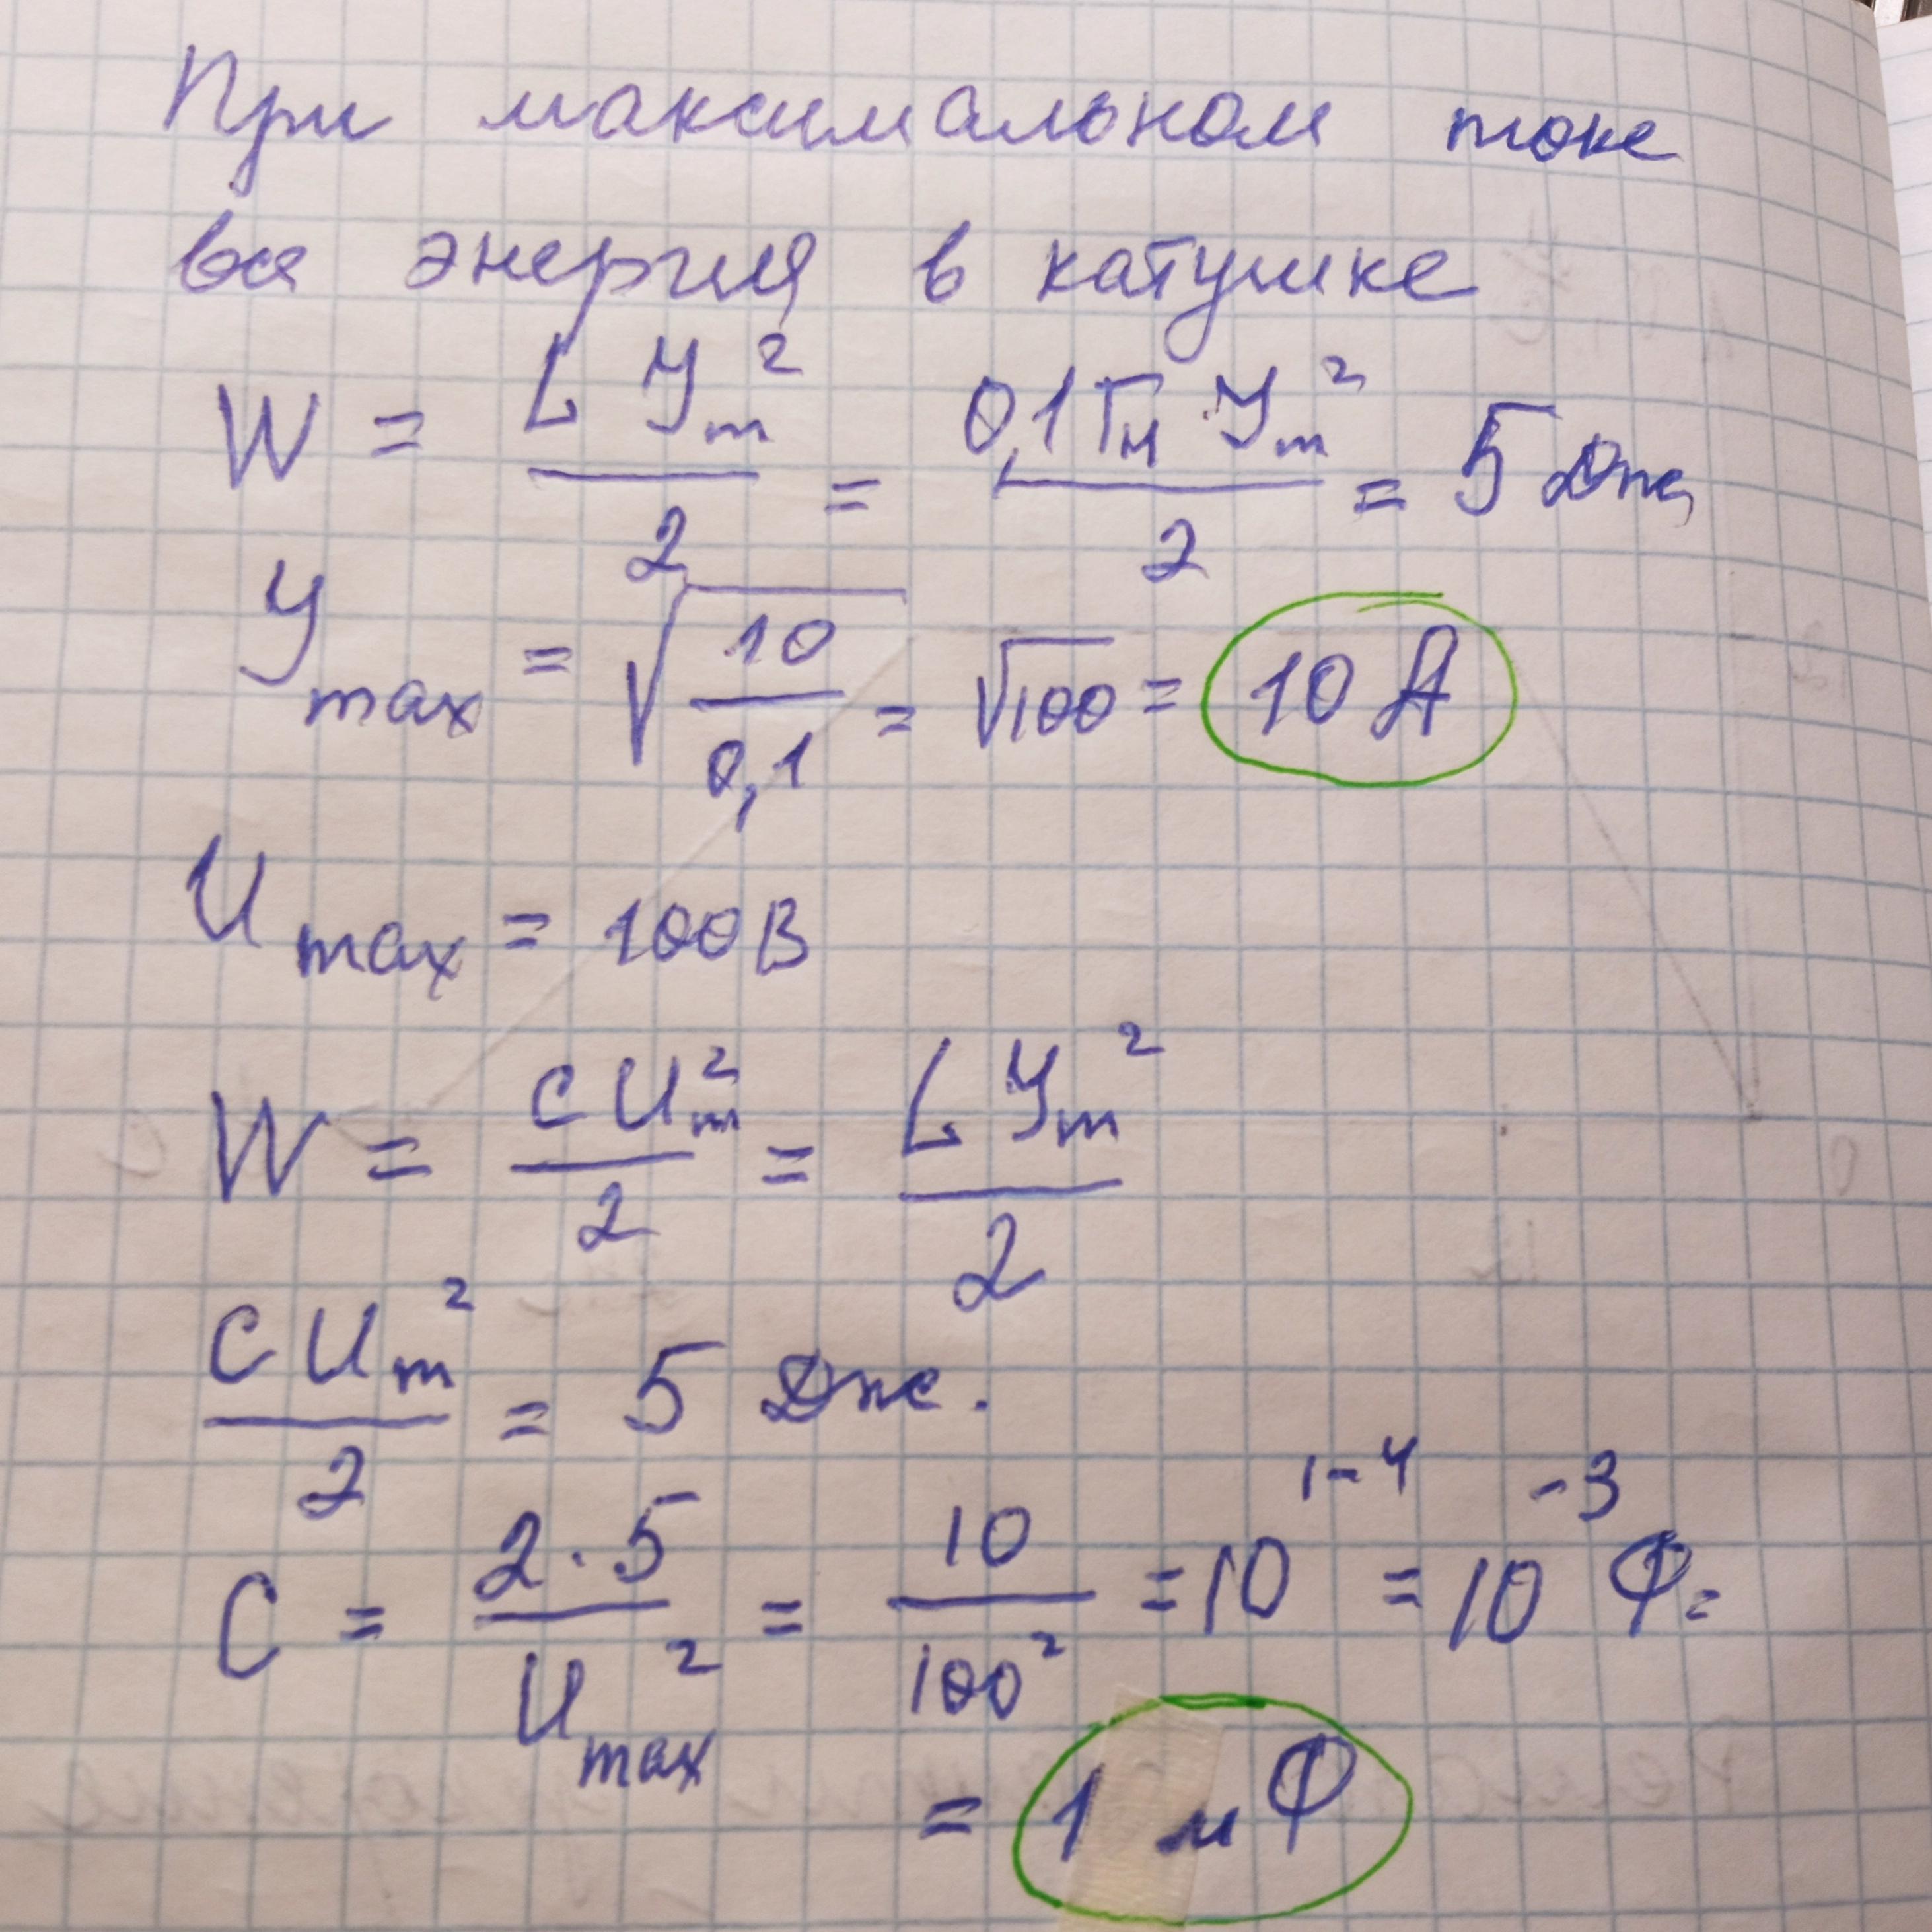 При максимальном токе
вся энергия в катушке
W = L Ym² / 2 = 0,1 Гн Ym² / 2 = 5 Дж,
Ymax = √(10 / 0,1) = √100 = 10 А
Umax = 100 В
W = C Um² / 2 = L Ym² / 2
C Um² / 2 = 5 Дж.
C = 2 · 5 / Umax² = 10 / 100² = 10¹⁻⁴ = 10⁻³ Ф =
= 1 мФ